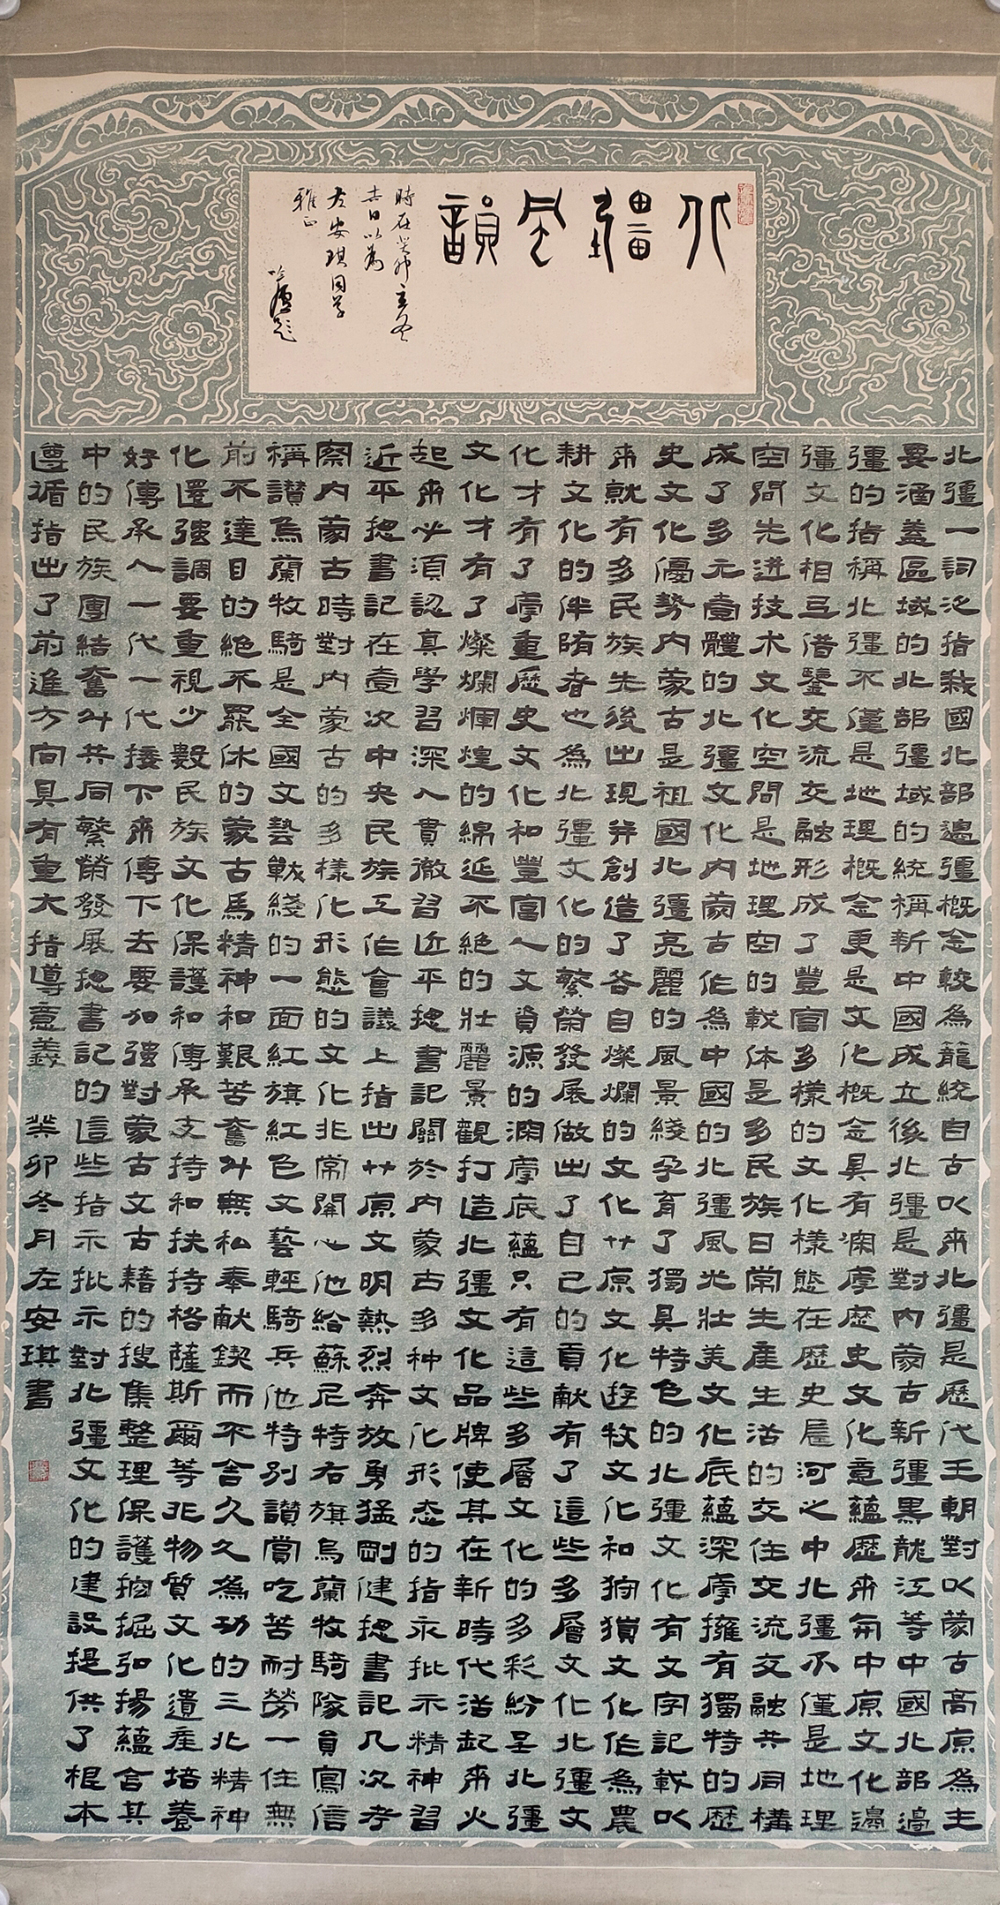 北疆風韻
時在癸卯立冬
吉日以為
左安琪同學
雅正
北疆一詞泛指我國北部邊疆概念較為籠統自古以來北疆是歷代王朝對以蒙古高原為主
要涵蓋區域的北部疆域的統稱新中國成立後北疆是對內蒙古新疆黑龍江等中國北部邊
疆的指稱北疆不僅是地理概念更是文化概念具有深厚歷史文化意蘊歷來與中原文化邊
疆文化相互借鑒交流交融形成了豐富多樣的文化樣態在歷史長河之中北疆不僅是地理
空間先進技术文化空間是地理空的載体是多民族日常生產生活的交往交流交融共同構
成了多元壹體的北疆文化內蒙古作為中國的北疆風光壯美文化底蘊深厚擁有獨特的歷
史文化優勢內蒙古是祖國北疆亮麗的風景綫孕育了獨具特色的北疆文化有文字記載以
來就有多民族先後出現并創造了各自燦爛的文化艸原文化遊牧文化和狩獵文化作為農
耕文化的伴随者也為北疆文化的繁榮發展做出了自己的貢献有了這些多層文化北疆文
化才有了厚重歷史文化和豐富人文資源的深厚底蘊只有這些多層文化的多彩紛呈北疆
文化才有了燦爛輝煌的綿延不絕的壯麗景觀打造北疆文化品牌使其在新時代活起來火
起來必須認真學習深入貫徹習近平總書記關於內蒙古多种文化形态的指示批示精神習
近平總書記在壹次中央民族工作會議上指出艸原文明熱烈奔放勇猛剛健總書記几次考
察內蒙古時對內蒙古的多樣化形態的文化非常關心他給蘇尼特右旗烏蘭牧騎隊員寫信
稱讚烏蘭牧騎是全國文藝戰綫的一面紅旗紅色文藝輕騎兵他特別讚賞吃苦耐勞一往無
前不達目的絕不罷休的蒙古馬精神和艱苦奮斗無私奉献鍥而不舍久久為功的三北精神
化還強調要重視少數民族文化保護和傳承支持和扶持格薩斯爾等非物質文化遺產培養
好傳承人一代一代接下來傳下去要加強對蒙古文古籍的搜集整理保護挖掘弘揚蘊含其
中的民族團結奮斗共同繁榮發展總書記的這些指示批示對北疆文化的建設提供了根本
遵循指出了前進方向具有重大指導意義 癸卯冬月左安琪書